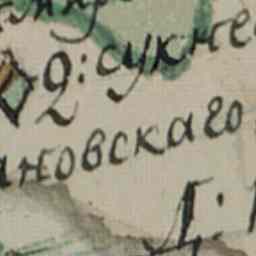 2: сукне
ановскаго
Д: